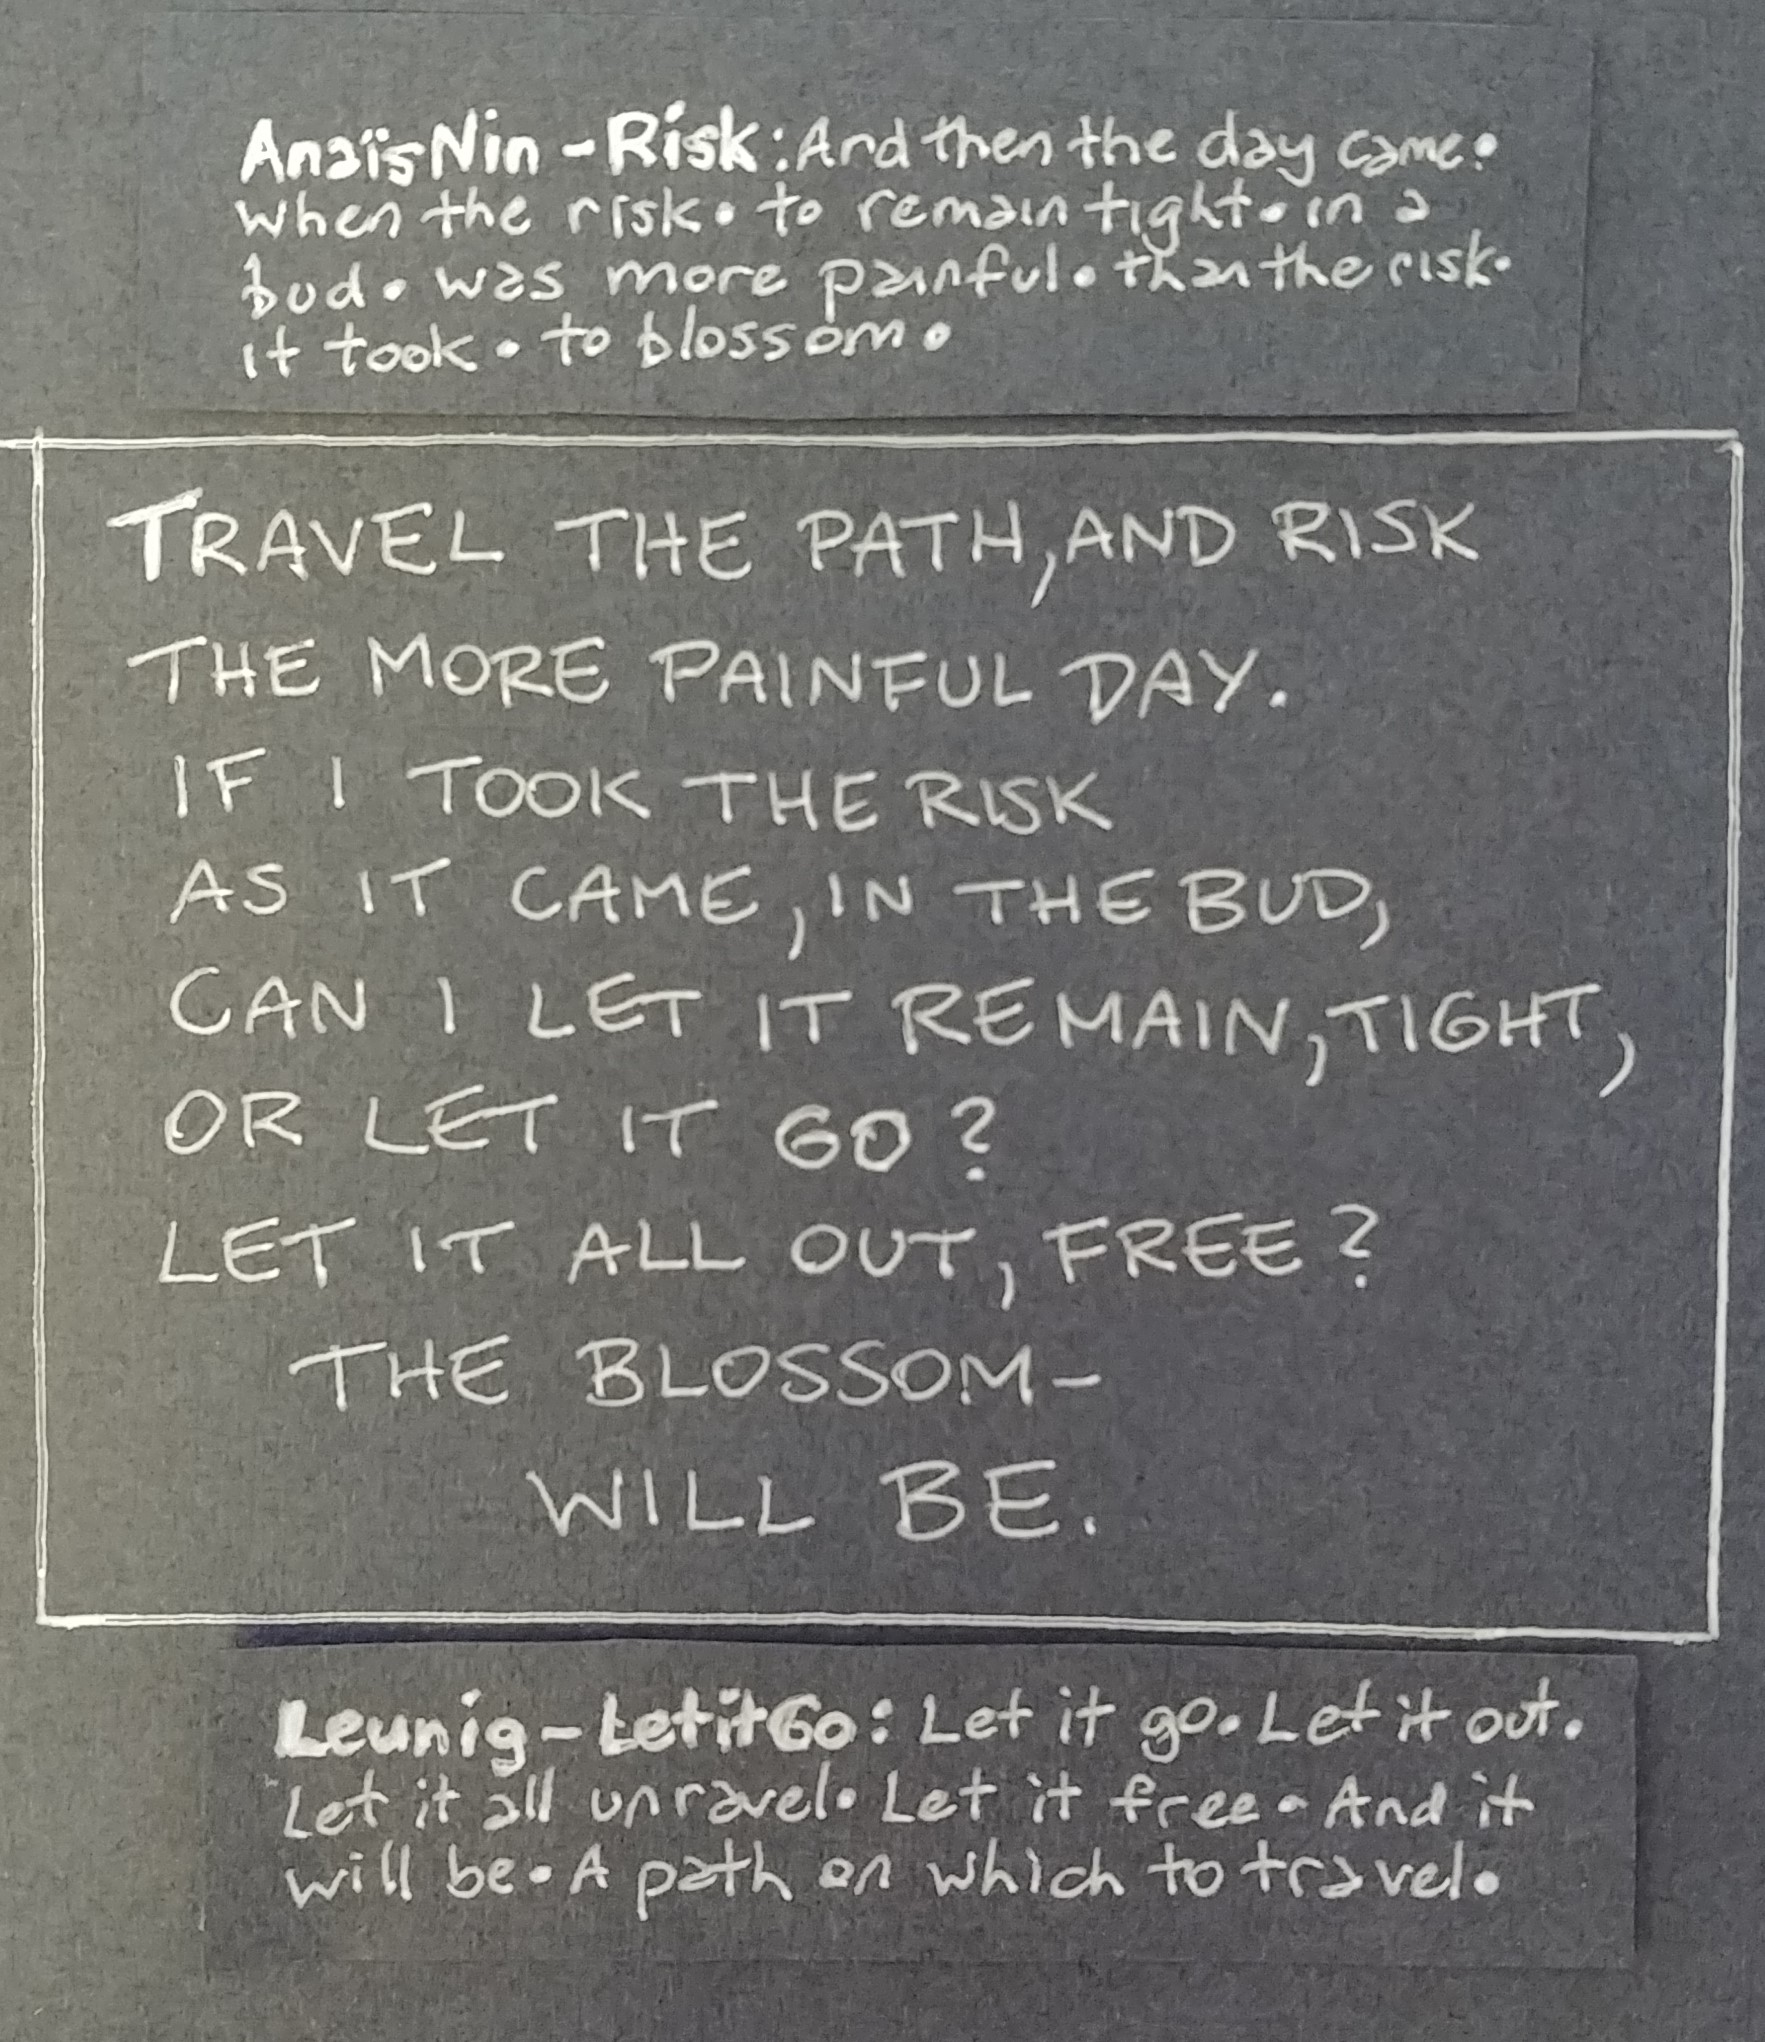 Anaïs Nin - Risk: And then the day came.
when the risk. to remain tight. in a
bud. was more painful. than the risk.
it took. to blossom.
TRAVEL THE PATH, AND RISK
THE MORE PAINFUL DAY.
IF I TOOK THE RISK
AS IT CAME, IN THE BUD,
CAN I LET IT REMAIN, TIGHT,
OR LET IT GO?
LET IT ALL OUT, FREE?
THE BLOSSOM-
WILL BE.
Leunig - Let it Go: Let it go. Let it out.
Let it all unravel. Let it free. And it
will be. A path on which to travel.